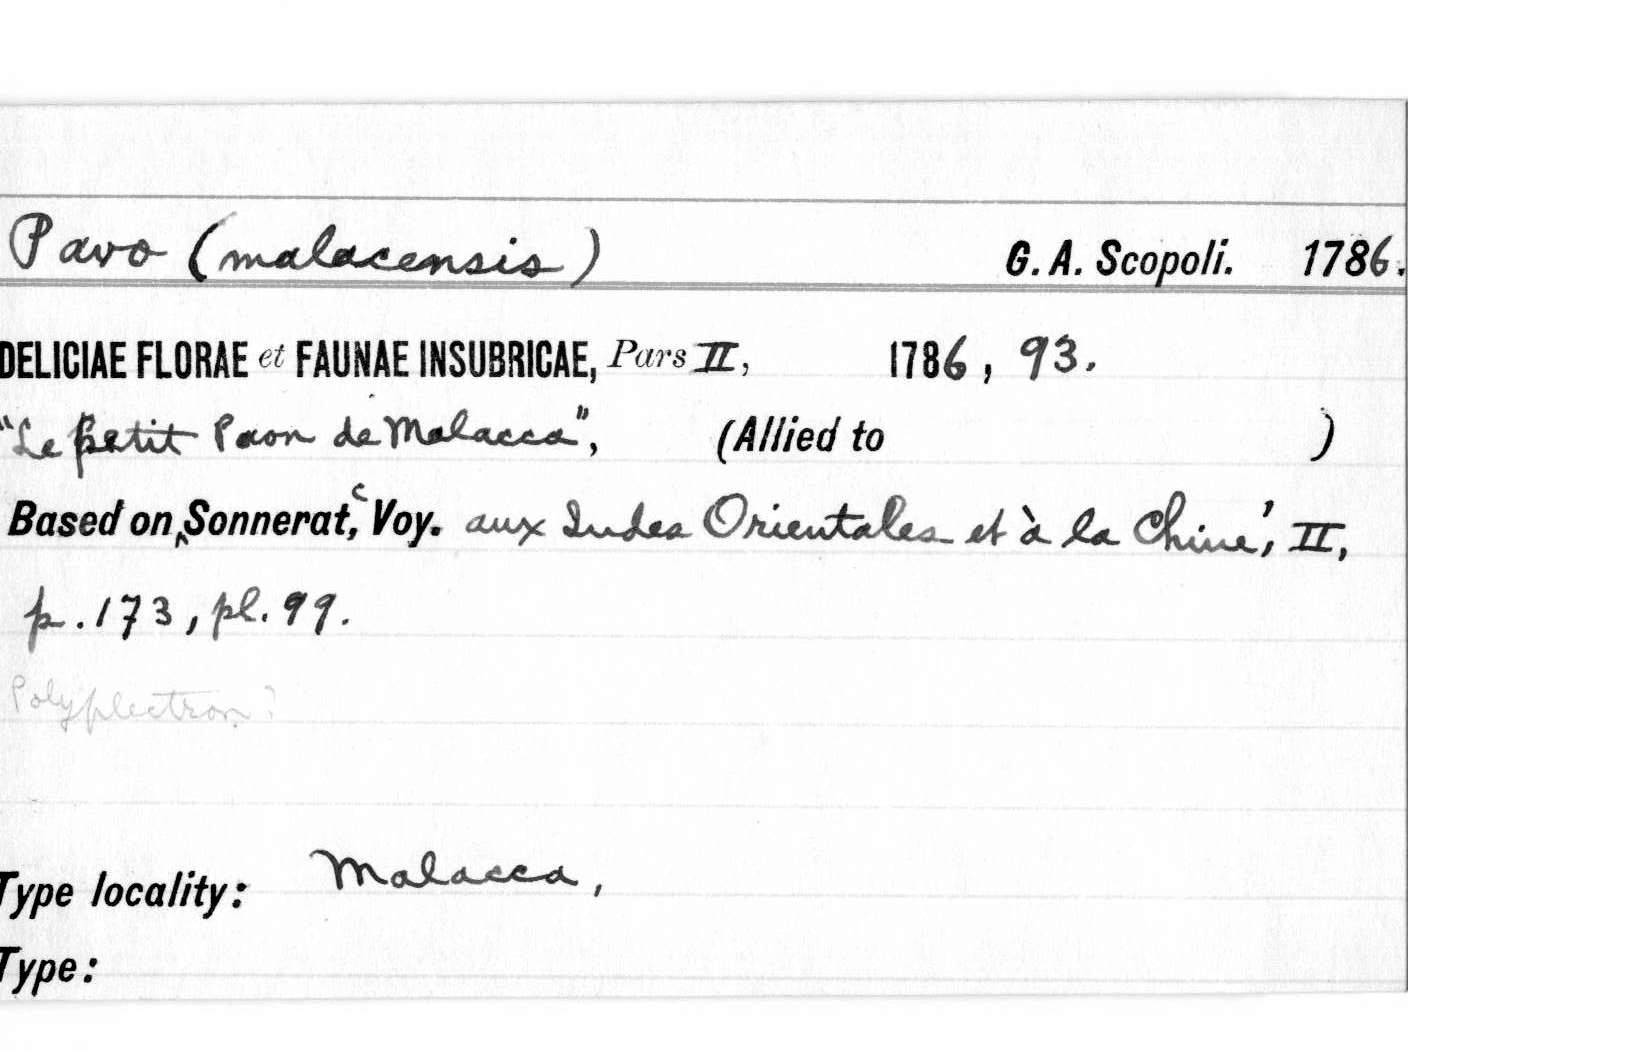 Pavo (malacensis) G. A. Scopoli. 1786.
DELICIAE FLORAE et FAUNAE INSUBRICAE, Pars II, 1786, 93.
"Le petit Paon de Malacca", (Allied to )
Based on, Sonnerat,ʿ Voy. aux Indes Orientales et à la Chine,' II,
p. 173, pl. 99.
Polyplectron?
Type locality: Malacca,
Type: